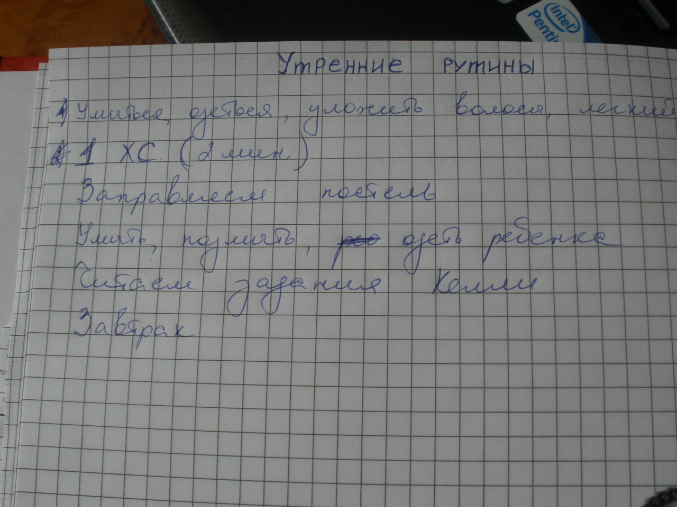 intel
Pentiu
Утренние рутины
1) Умыться, одеться, уложить волосы, легкий
1 ХС (2 мин.)
Заправляем постель
Умыть, одеть ребенка
Читаем задания Келли
Завтрак